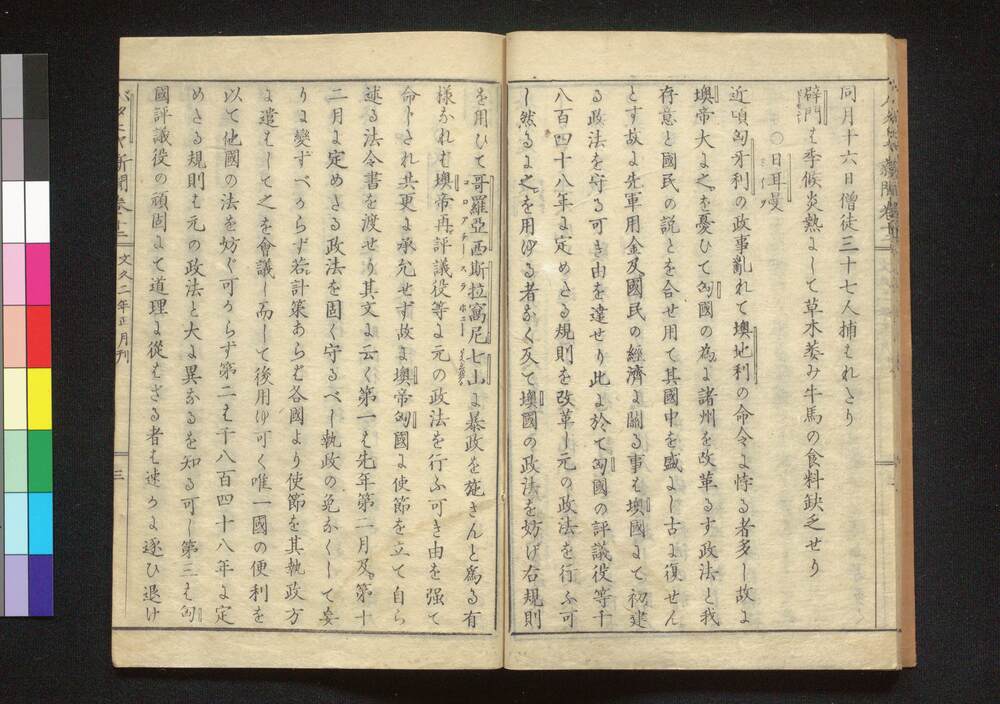 同月十六日僧徒三十七人捕はれたり
辟門は季候炎熱にして草木萎み牛馬の食料缺乏せり
〇日耳曼
近頃匈牙利の政事亂れて墺地利の命令に悖る者多し故に
墺帝大に之を憂ひて匈國の為に諸州を改革るす政法と我
存意と國民の説とを合せ用て其國中を盛にし古に復せん
とす故に先軍用金及國民の經濟に關る事は墺國にて初建
る政法を守る可き由を達せり此に於て匈國の評議役等千
八百四十八年に定めたる規則を改革し元の政法を行ふ可
し然るに之を用ゆる者なく反て墺國の政法を妨げ右規則
を用ひて哥羅亞西斯拉窩尼七山に暴政を施さんと為る有
様なれは墺帝再評議役等に元の政法を行ふ可き由を强て
命しされ共更に承允せず故に墺帝匈國に使節を立て自ら
述る法令書を渡せり其文に云く第一は先年第二月及第十
二月に定めたる政法を固く守るべし執政の免なくして妄
りに變ずべからず若計策あらは各國より使節を其執政方
に遣はして之を會議し而して後用ゆ可く唯一國の便利を
以て他國の法を妨ぐ可からず第二は千八百四十八年に定
めたる規則は元の政法と大に異なるを知る可し第三は匈
國評議役の頑固にて道理に從はさる者は速かに逐ひ退け
バタヒヤ新聞卷十二 文久二年正月刊 三